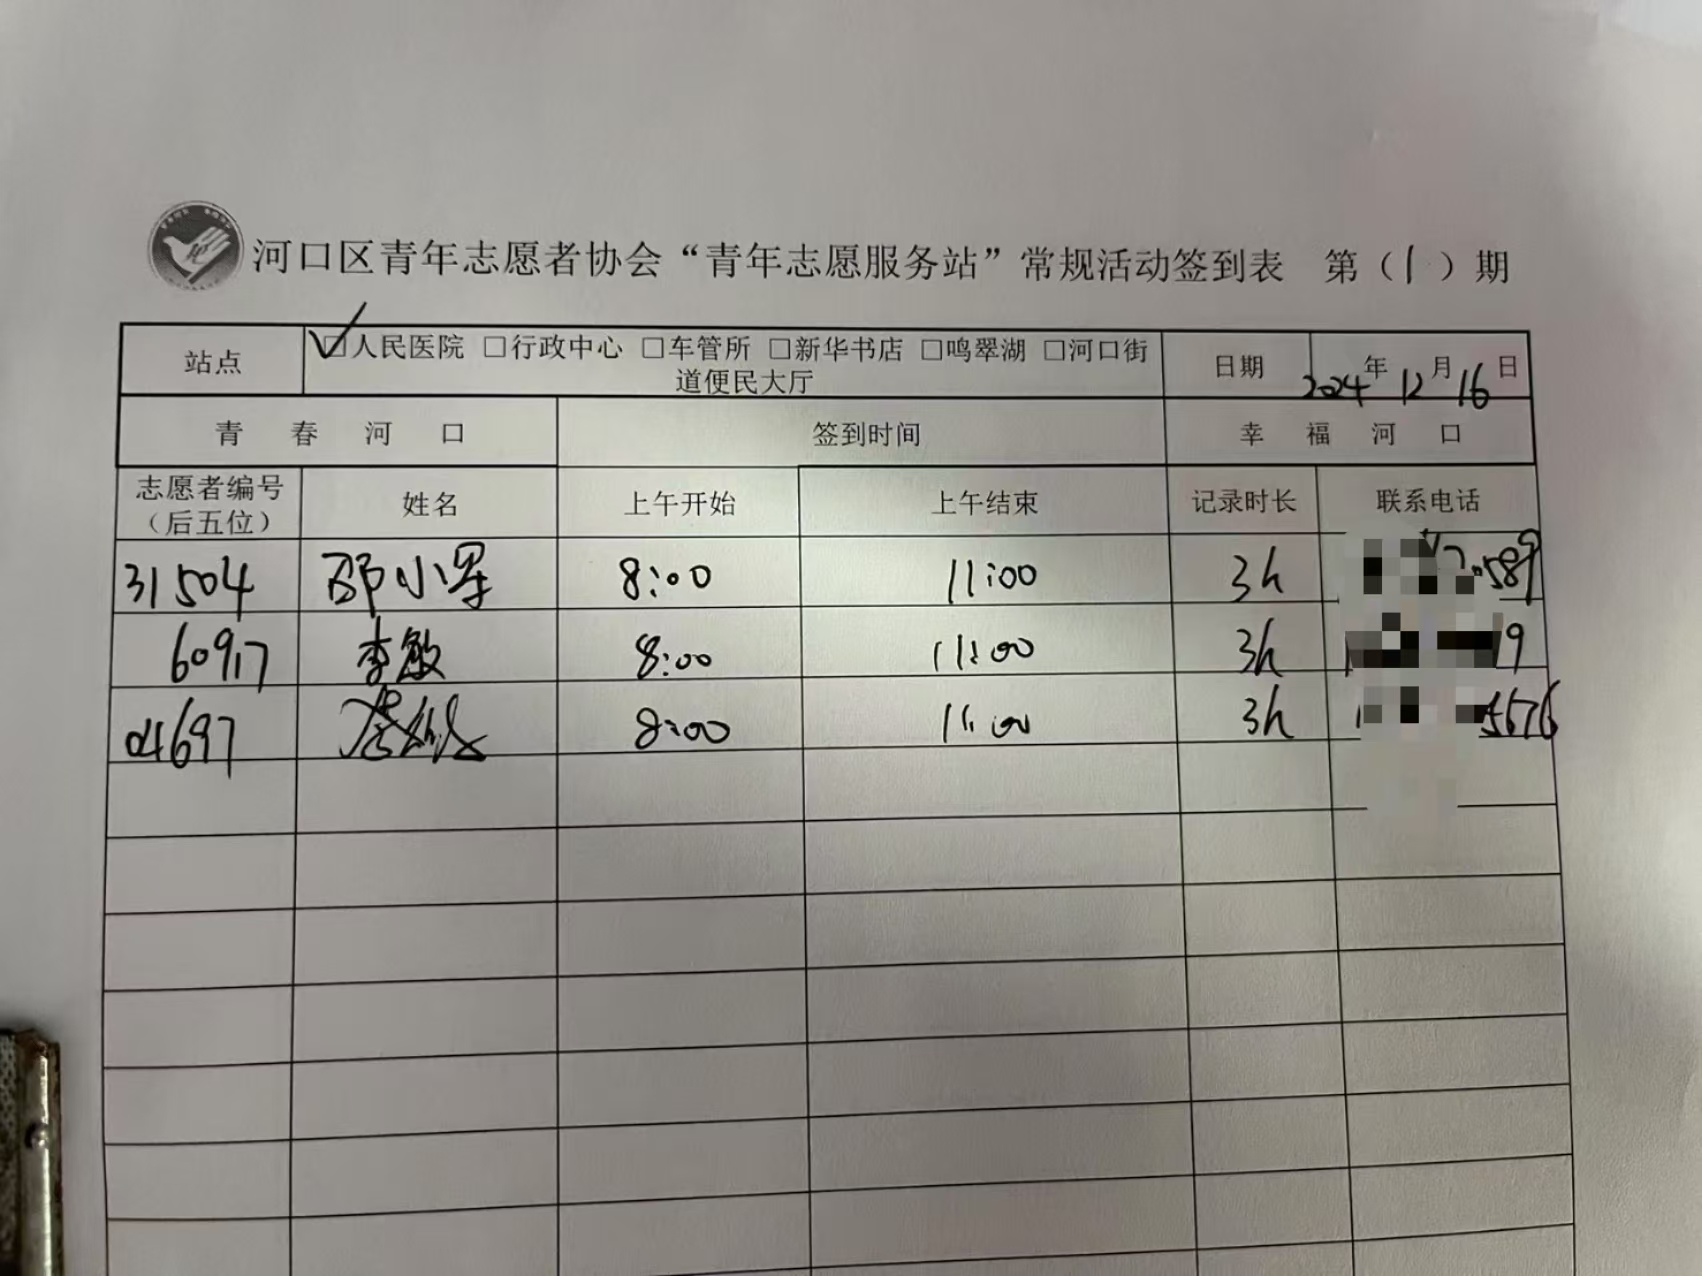 河口区青年志愿者协会“青年志愿服务站”常规活动签到表 第（1）期
站点 ☑人民医院 □行政中心 □车管所 □新华书店 □鸣翠湖 □河口街道便民大厅 日期 2024年12月16日
青春河口 签到时间 幸福河口
志愿者编号（后五位） 姓名 上午开始 上午结束 记录时长 联系电话
31504 邵小军 8:00 11:00 3h 589
60917 李敏 8:00 11:00 3h 19
04697 8:00 11:00 3h 5676